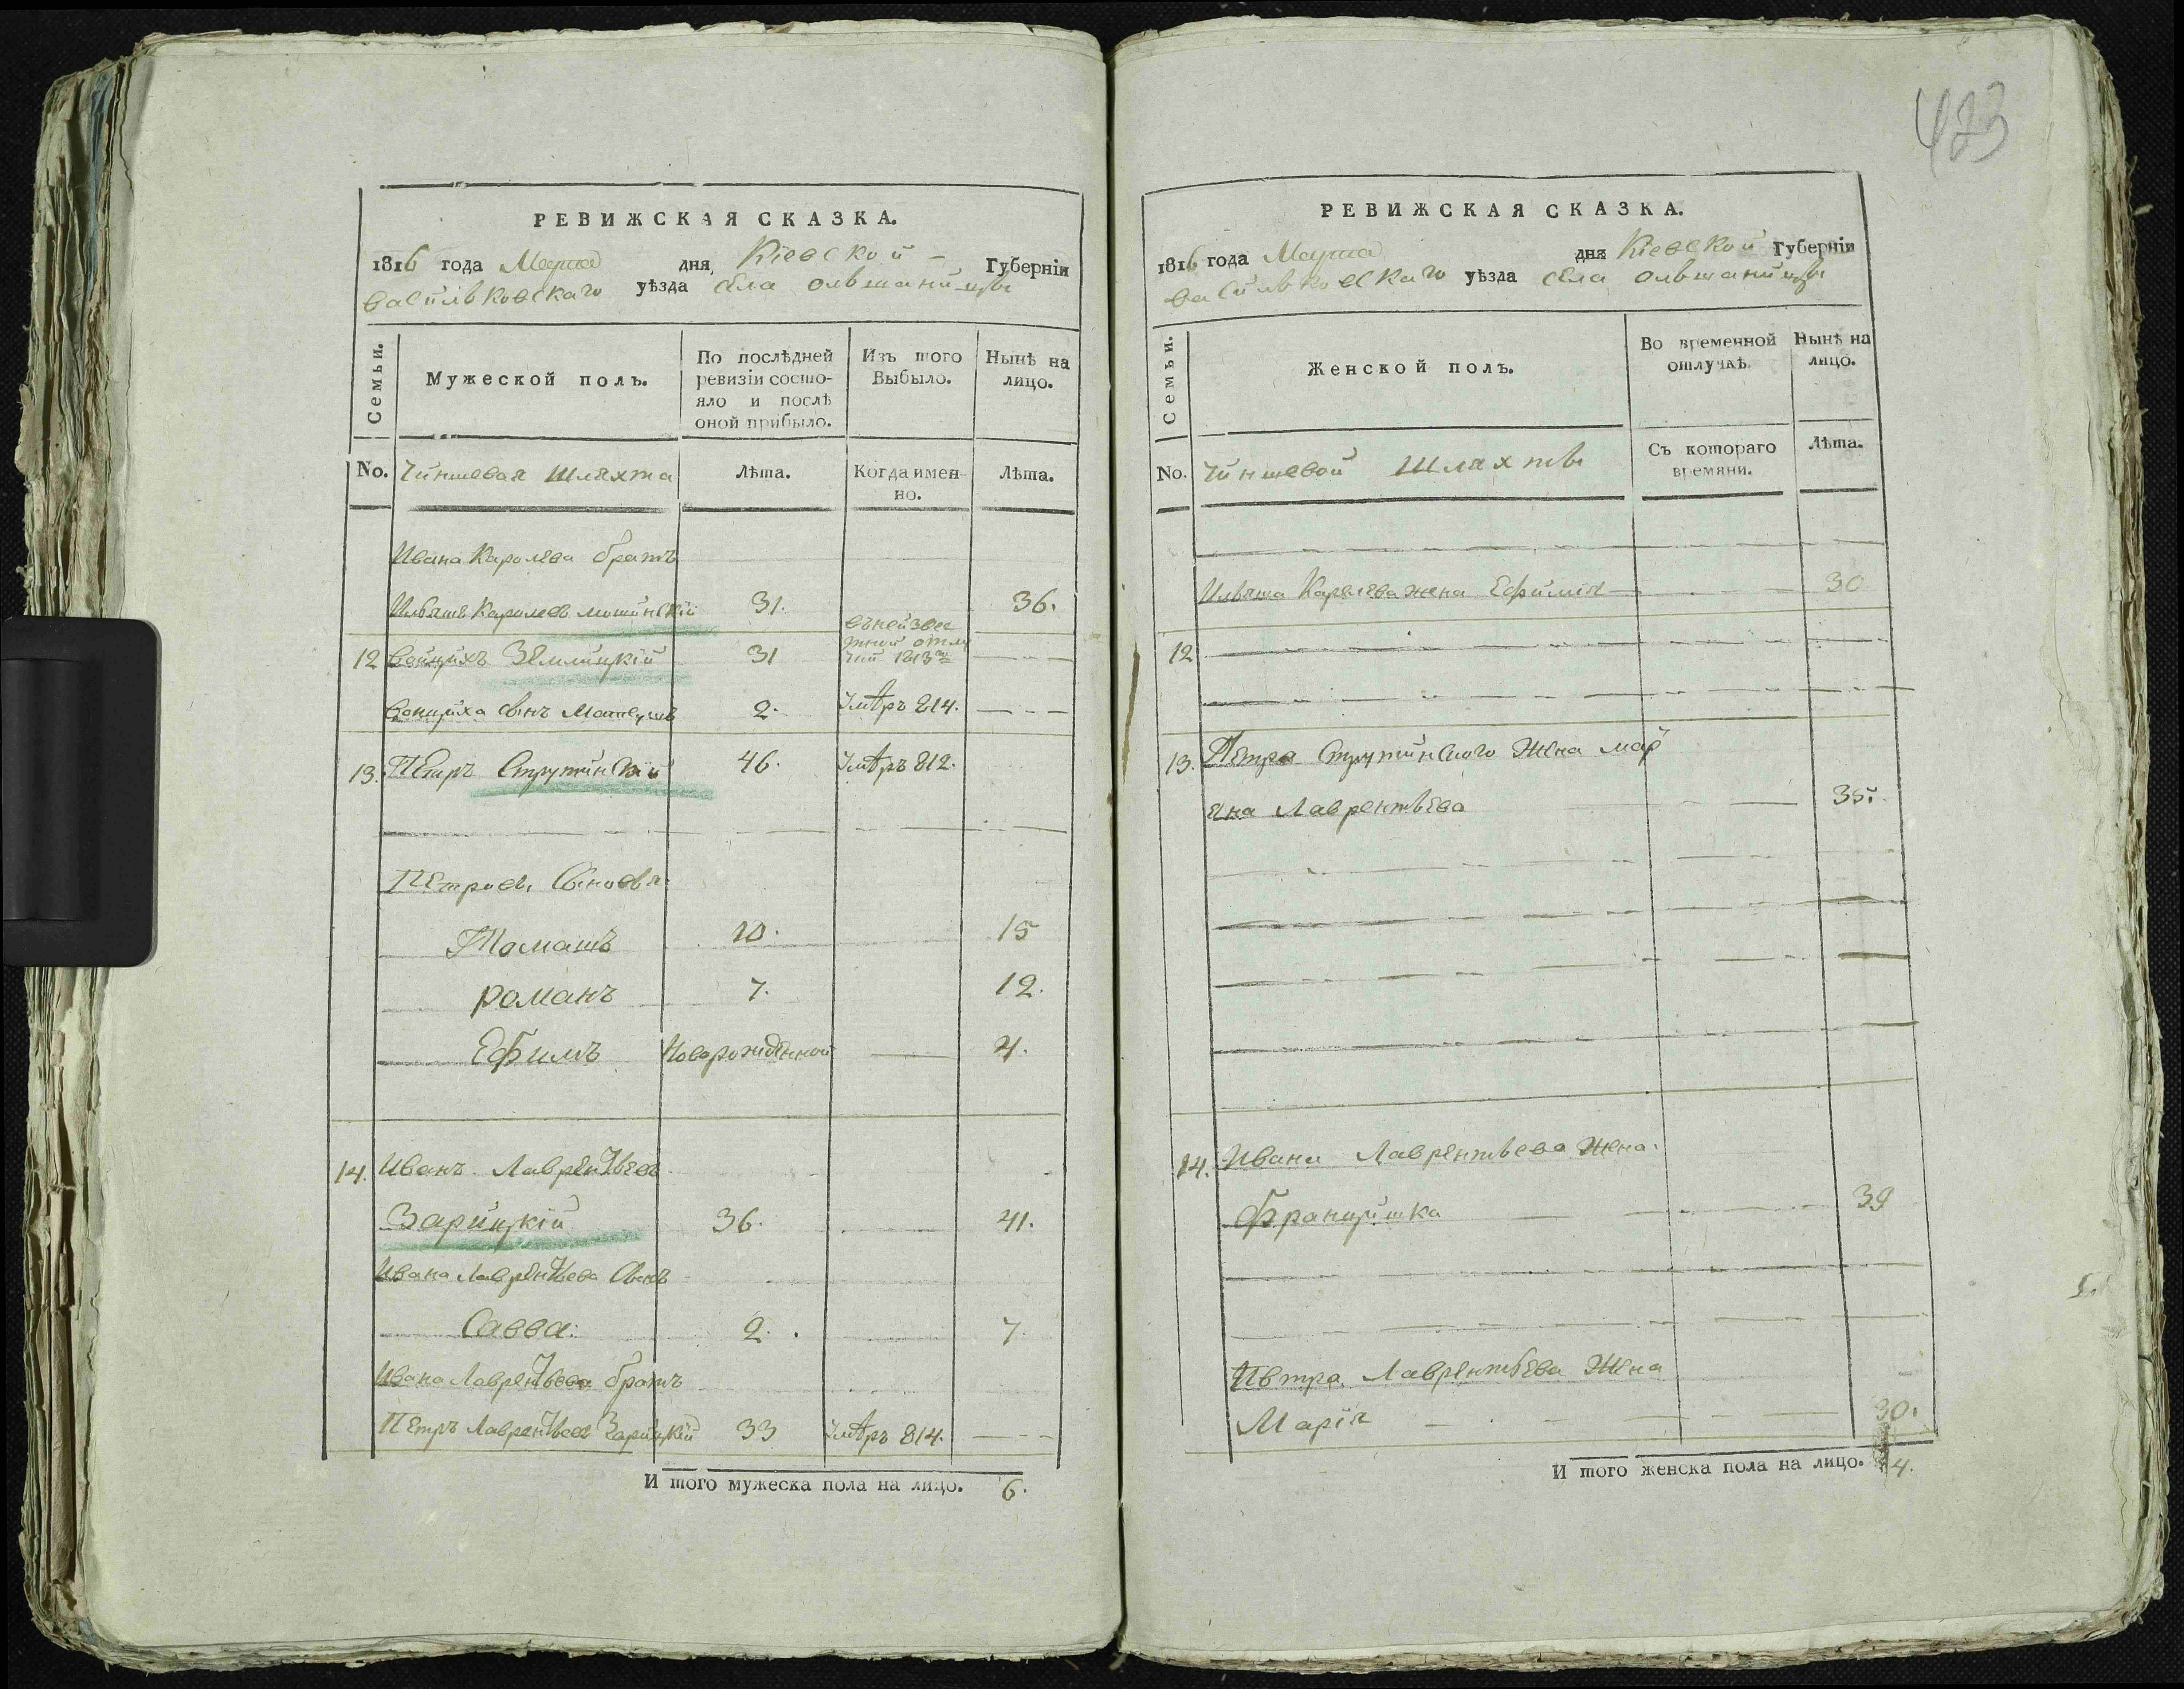 РЕВИЖСКАЯ СКАЗКА.
1816 года Марта дня Кіевской Губерніи
васильковскаго уѣзда села ольшаницы
Семьи.
Мужеской полъ.
По послѣдней ревизіи состо-
яло и послѣ
оной прибыло.
Изъ того
Выбыло.
Нынѣ на
лицо.
No. Чиншевая шляхта
Лѣта.
Когда имен-
но.
Лѣта.
Ивана Каролева братъ
Ильяшъ Каролевъ 31. 36.
12 Войцихъ 31 въ неизвес
тной отлу
чки 1813го
Войциха сынъ Матеушъ 2. Умѣръ 814.
13. Пётръ Струтинскій 46. Умѣръ 812.
Петровы Сыновья
Томашъ 10. 15
романъ 7. 12.
Ефимъ Новорожденной 4.
14. Иванъ Лаврентьевъ
Зарицкій 36. 41.
Ивана Лаврентьева Сынъ
Савва: 2. 7.
Ивана Лаврентьева братъ
Пётръ Лаврентьевъ Зарицкій 33 Умѣръ 814.
И того мужеска пола на лицо. 6.
423
РЕВИЖСКАЯ СКАЗКА.
1816 года Марта дня Кіевской Губерніи
васильковскаго уѣзда села ольшаницы
Семьи.
Женской полъ.
Во временной
отлучкѣ.
Нынѣ на
лицо.
No. Чиншевой шляхты
Съ котораго
времяни.
Лѣта.
Ильяша Каролева жена Ефимія 30
12
13. Пётра Струтинского Жена мар
яна Лаврентьева 35.
14. Ивана Лаврентьева жена
Францишка 39
Пётра Лаврентьева Жена
Марія 30.
И того женска пола на лицо. 4.